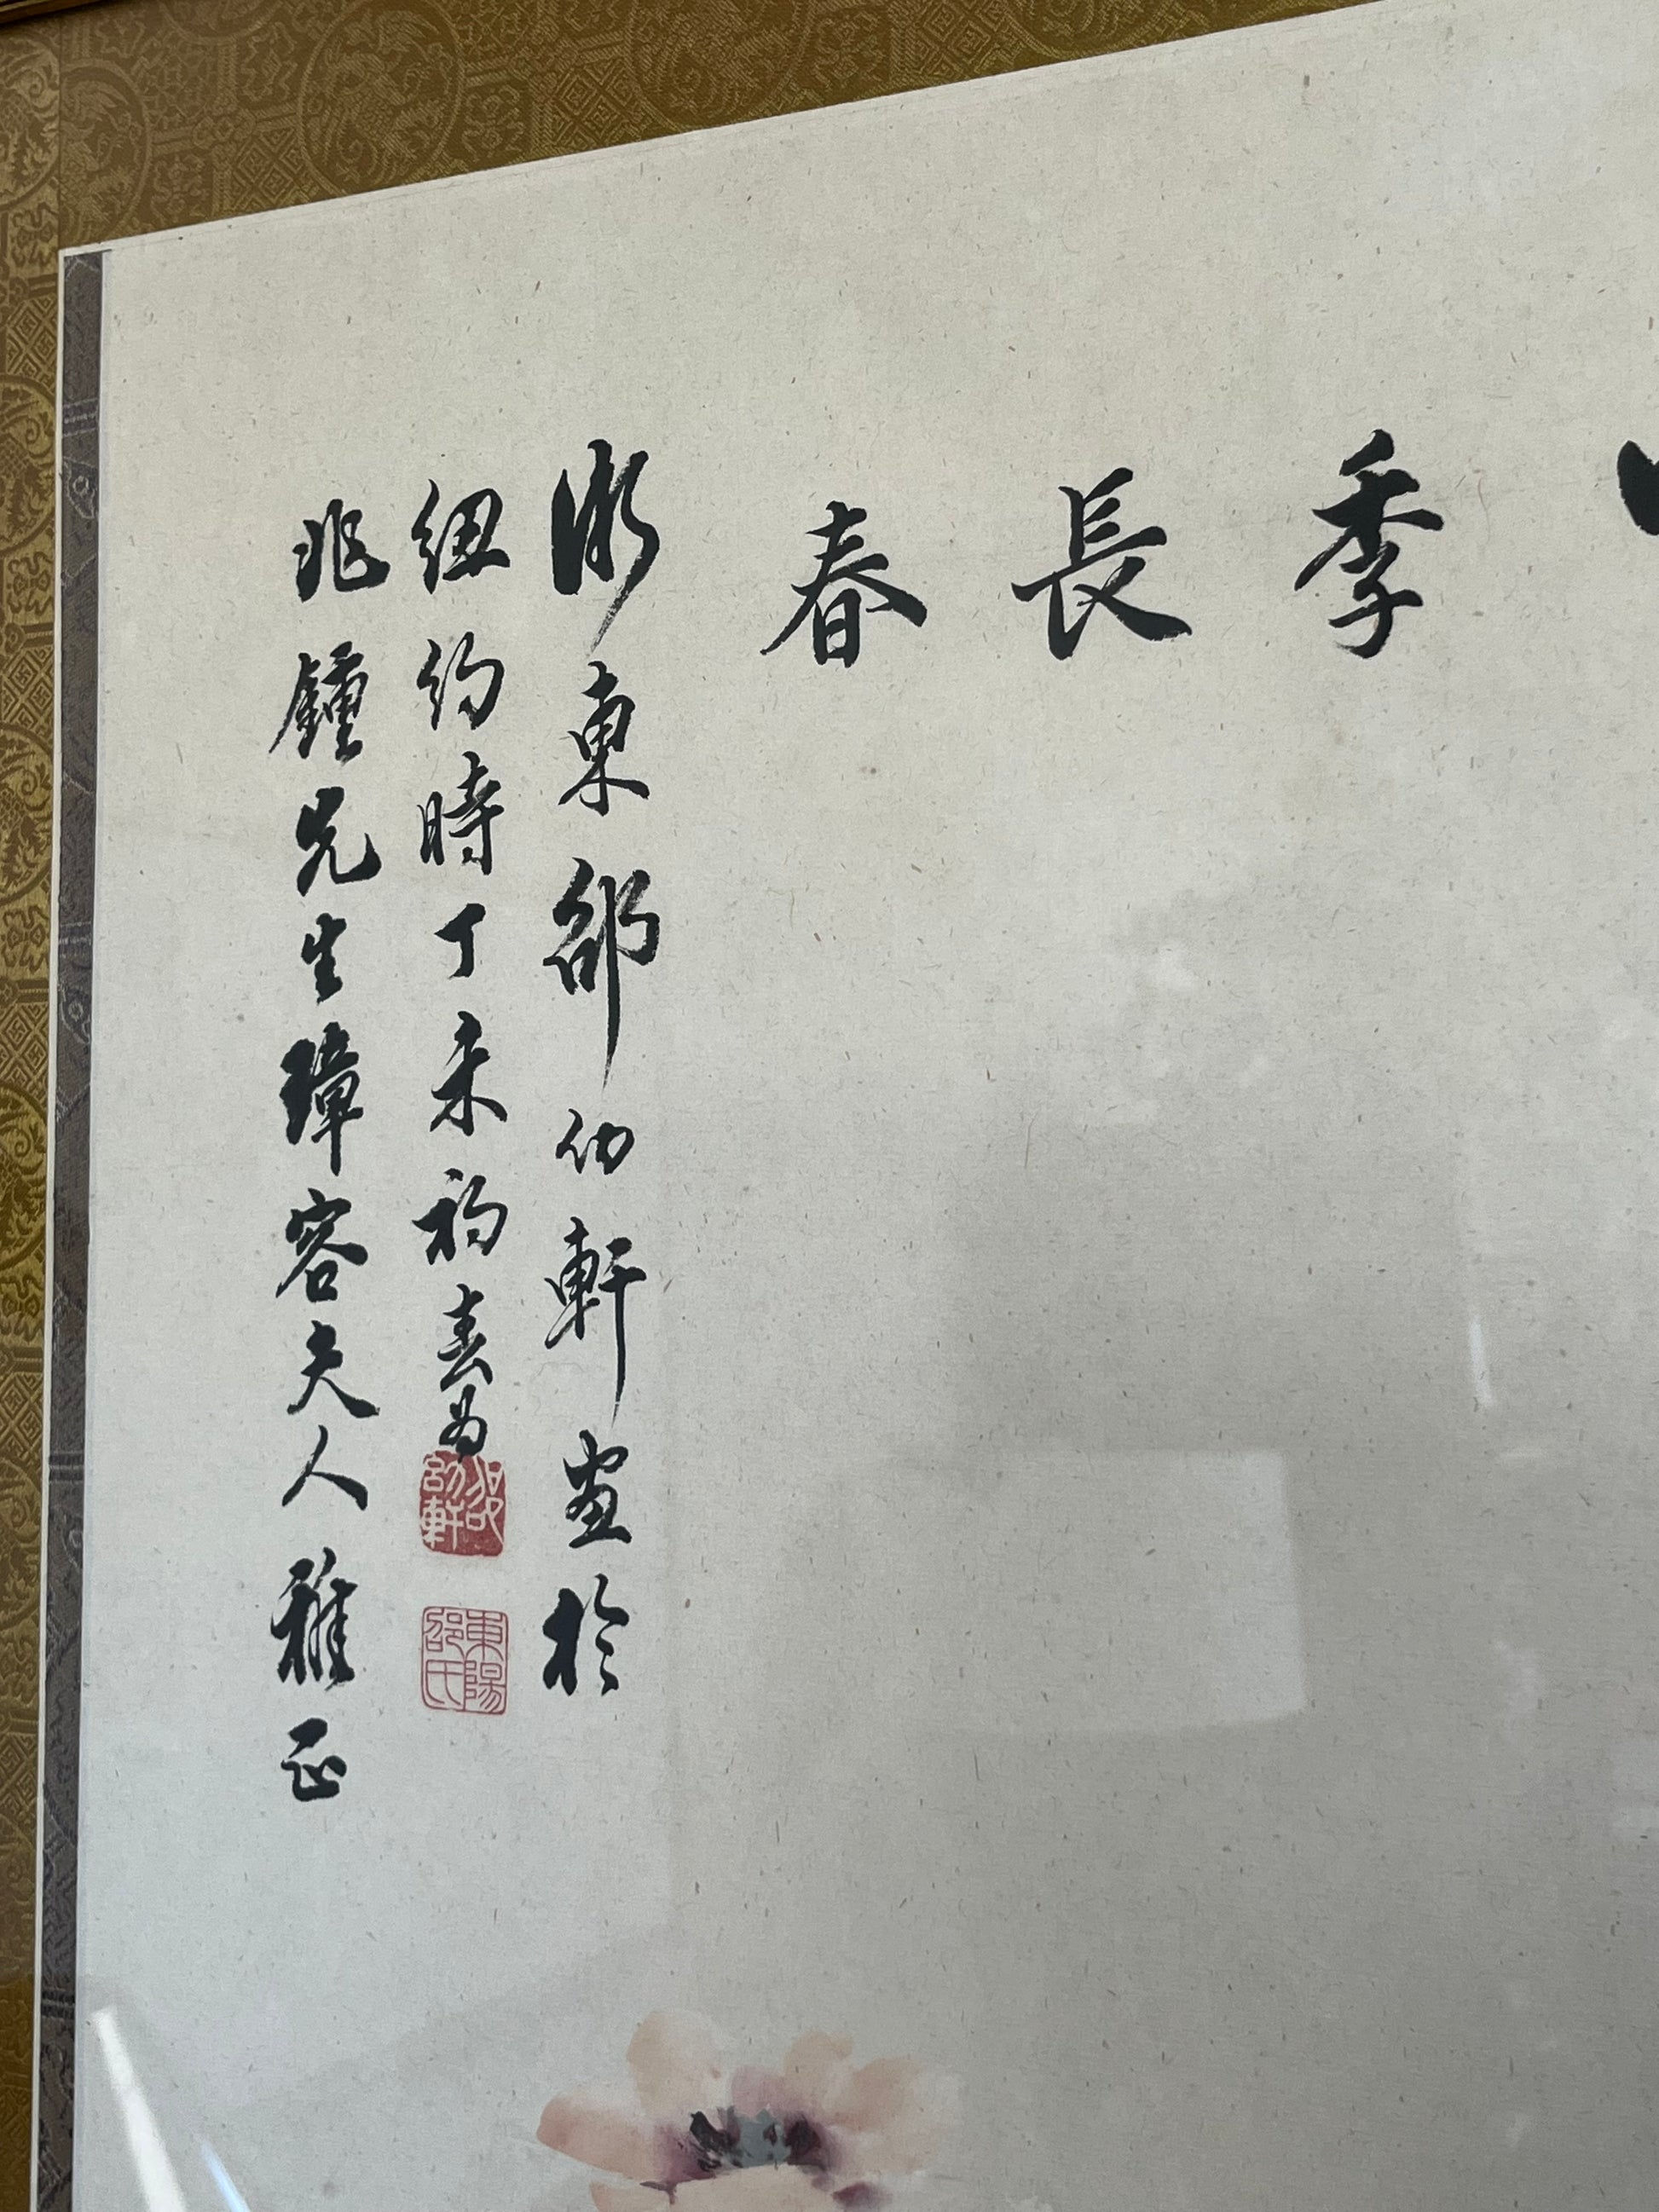 季長春
浙東邵幼軒畫於
紐約時丁未初春為
兆鍾先生璋容夫人雅正
邵幼軒
東陽邵氏